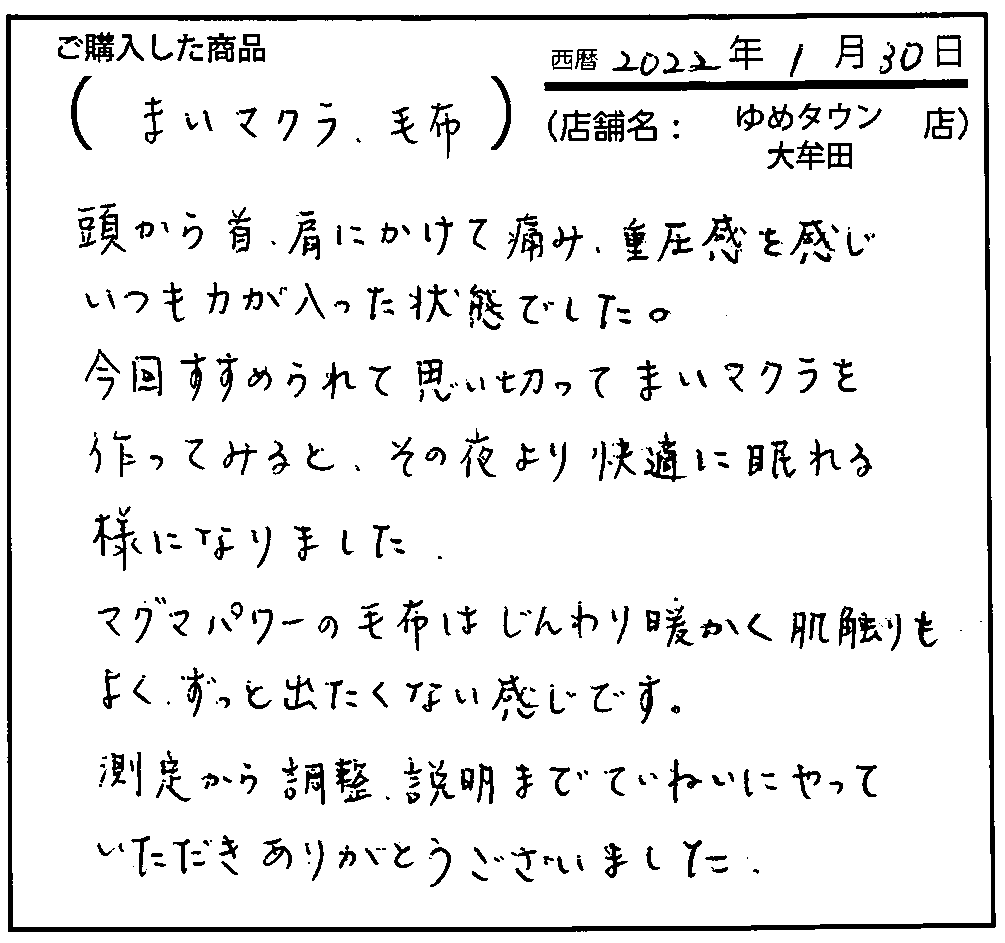 ご購入した商品
西暦 2022年 1月30日
(まいマクラ、毛布)
(店舗名: ゆめタウン 店)
大牟田
頭から首、肩にかけて痛み、重圧感を感じ
いつも力が入った状態でした。
今回すすめられて思い切ってまいマクラを
作ってみると、その夜より快適に眠れる
様になりました.
マグマパワーの毛布はじんわり暖かく肌触りも
よく、ずっと出たくない感じです。
測定から調整、説明までていねいにやって
いただきありがとうございました.